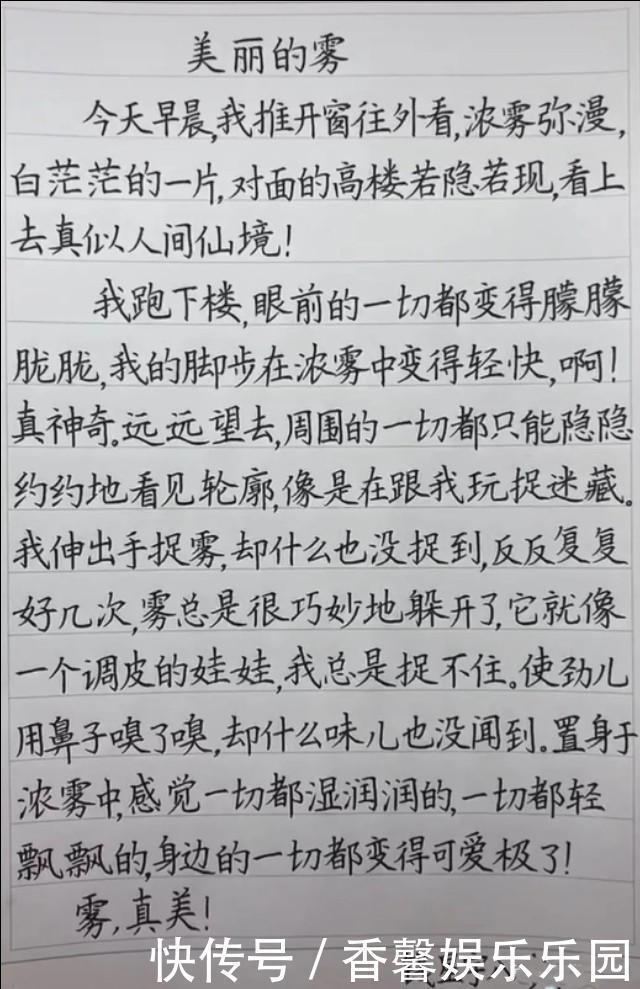 美丽的雾
今天早晨,我推开窗往外看,浓雾弥漫,
白茫茫的一片,对面的高楼若隐若现,看上
去真似人间仙境!
我跑下楼,眼前的一切都变得朦朦
胧胧,我的脚步在浓雾中变得轻快,啊!
真神奇。远远望去,周围的一切都只能隐隐
约约地看见轮廓,像是在跟我玩捉迷藏。
我伸出手捉雾,却什么也没捉到,反反复复
好几次,雾总是很巧妙地躲开了,它就像
一个调皮的娃娃,我总是捉不住。使劲儿
用鼻子嗅了嗅,却什么味儿也没闻到。置身于
浓雾中,感觉一切都湿润润的,一切都轻
飘飘的,身边的一切都变得可爱极了!
雾,真美!
快传号 / 香馨娱乐乐园